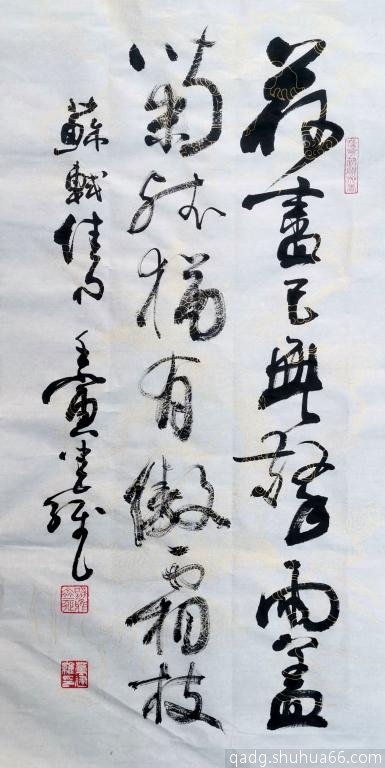 荷盡已無擎雨蓋
菊殘猶有傲霜枝
蘇軾佳句
qadg.shuhua66.com